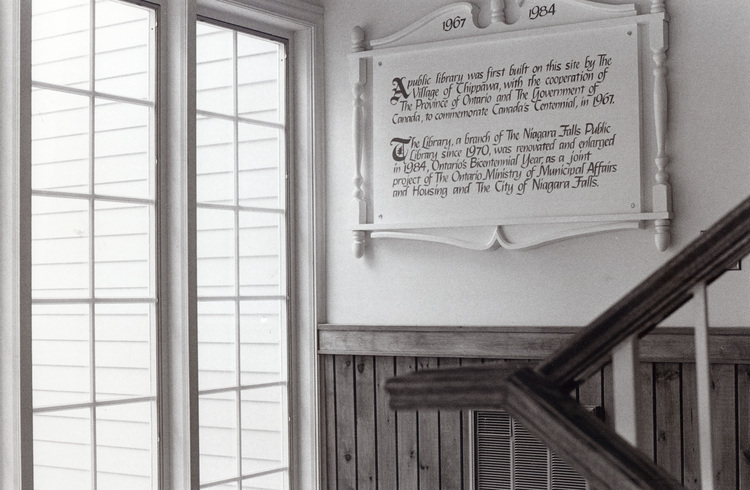 1967 1984
A public library was first built on this site by The
Village of Chippawa, with the cooperation of
The Province of Ontario and The Government of
Canada, to commemorate Canada's Centennial, in 1967.
The Library, a branch of The Niagara Falls Public
Library since 1970, was renovated and enlarged
in 1984, Ontario's Bicentennial Year, as a joint
project of The Ontario Ministry of Municipal Affairs
and Housing and The City of Niagara Falls.